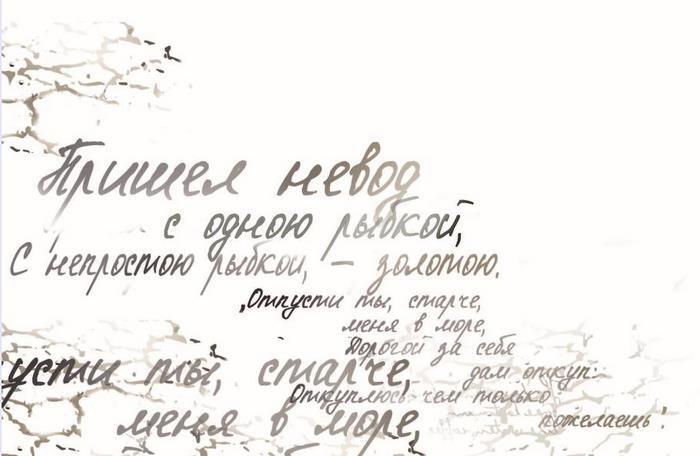 Пришел невод
с одною рыбкой,
С непростою рыбкой, – золотою.
„Отпусти ты, старче,
меня в море,
Дорогой за себя
дам откуп:
усти ты, старче,
Откуплюсь чем только
пожелаешь!
меня в море,